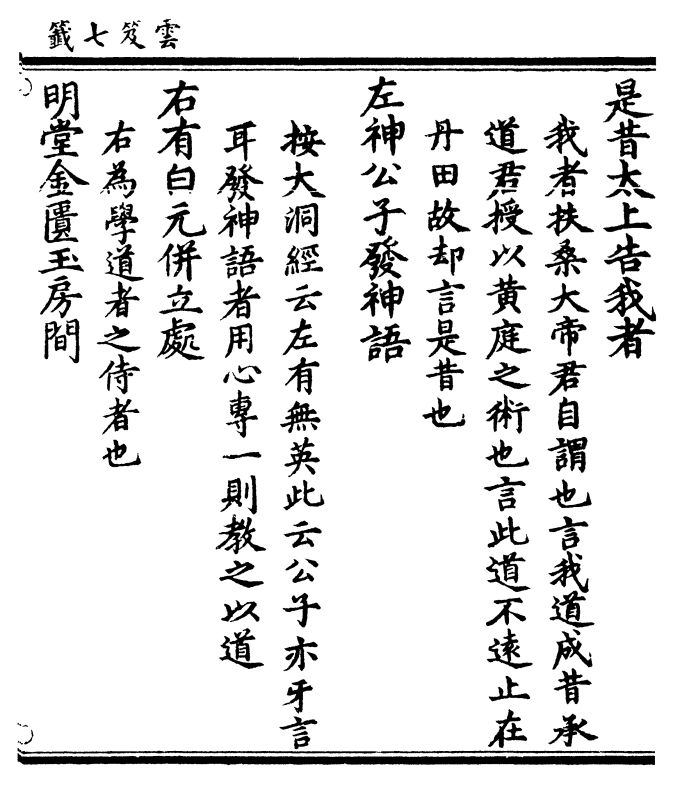 雲笈七籤
是昔太上告我者
我者扶桑大帝君自謂也言我道成昔承
道君授以黄庭之術也言此道不遠止在
丹田故却言是昔也
左神公子發神語
按大洞經云左有無英此云公子亦牙言
耳發神語者用心專一則教之以道
右有白元併立處
右為學道者之侍者也
明堂金匱玉房間